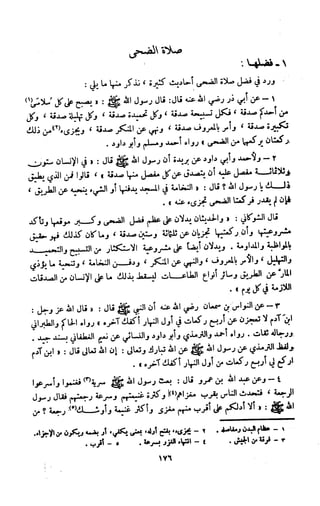 صلاة الضحى
١ - فضلها :
ورد في فضل صلاة الضحى أحاديث كثيرة ، نذكر منها ما يلي :
١ - عن أبي ذر رضي الله عنه قال: قال رسول الله ﷺ : « يصبح على كل سلامى(١)
من أحدكم صدقة ، فكل تسبيحة صدقة ، وكل تحميدة صدقة ، وكل تهليلة صدقة ، وكل
تكبيرة صدقة ، وأمر بالمعروف صدقة ، ونهي عن المنكر صدقة ، ويجزىء(٢) من ذلك
ركعتان يركعهما من الضحى » رواه أحمد ومسلم وأبو داود .
٢ - ولأحمد وأبي داود عن بريدة أن رسول الله ﷺ قال : « في الإنسان ستون
وثلاثمائة مفصل عليه أن يتصدق عن كل مفصل منها صدقة » ، قالوا فمن الذي يطيق
ذلك يا رسول الله ؟ قال : « النخامة في المسجد يدفنها أو الشيء ينحيه عن الطريق ،
فإن لم يقدر فركعتا الضحى تجزىء عنه » .
قال الشوكاني : « والحديثان يدلان على عظم فضل الضحى وكبر موقعها وتأكد
مشروعيتها وأن ركعتيها تجزيان عن ثلاثمائة وستين صدقة ، وما كان كذلك فهو حقيق
بالمواظبة والمداومة . ويدلان أيضاً على مشروعية الاستكثار من التسبيح والتحميد
والتهليل ، والأمر بالمعروف ، والنهي عن المنكر ، ودفن النخامة ، وتنحية ما يؤذي
المار عن الطريق وسائر أنواع الطاعات ليسقط بذلك ما على الإنسان من الصدقات
اللازمة في كل يوم » .
٣ - عن النواس بن سمعان رضي الله عنه أن النبي ﷺ قال : « قال الله عز وجل :
ابن آدم لا تعجزن عن أربع ركعات في أول النهار أكفك آخره » رواه الحاكم والطبراني
ورجاله ثقات . رواه أحمد والترمذي وأبو داود والنسائي عن نعيم الغطفاني بسند جيد .
ولفظ الترمذي عن رسول الله ﷺ عن الله تبارك وتعالى : إن الله تعالى قال : « ابن آدم
اركع لي أربع ركعات من أول النهار أكفك آخره » .
٤ - وعن عبد الله بن عمرو قال : بعث رسول الله ﷺ سرية(٣) فغنموا وأسرعوا
الرجعة ، فتحدث الناس بقرب مغزاهم(٤) وكثرة غنيمتهم وسرعة رجعتهم فقال رسول
الله ﷺ : « ألا أدلكم على أقرب منهم مغزى وأكثر غنيمة وأوشك(٥) رجعة ؟ من
١ - عظام البدن ومفاصله . ٢ - يجزىء ، بفتح أوله ، بمعنى يكفي ، أو بضمه ويكون من الإجزاء .
٣ - فرقة من الجيش . ٤ - انتهاء الغزو بسرعة . ٥ - أقرب .
١٧٦